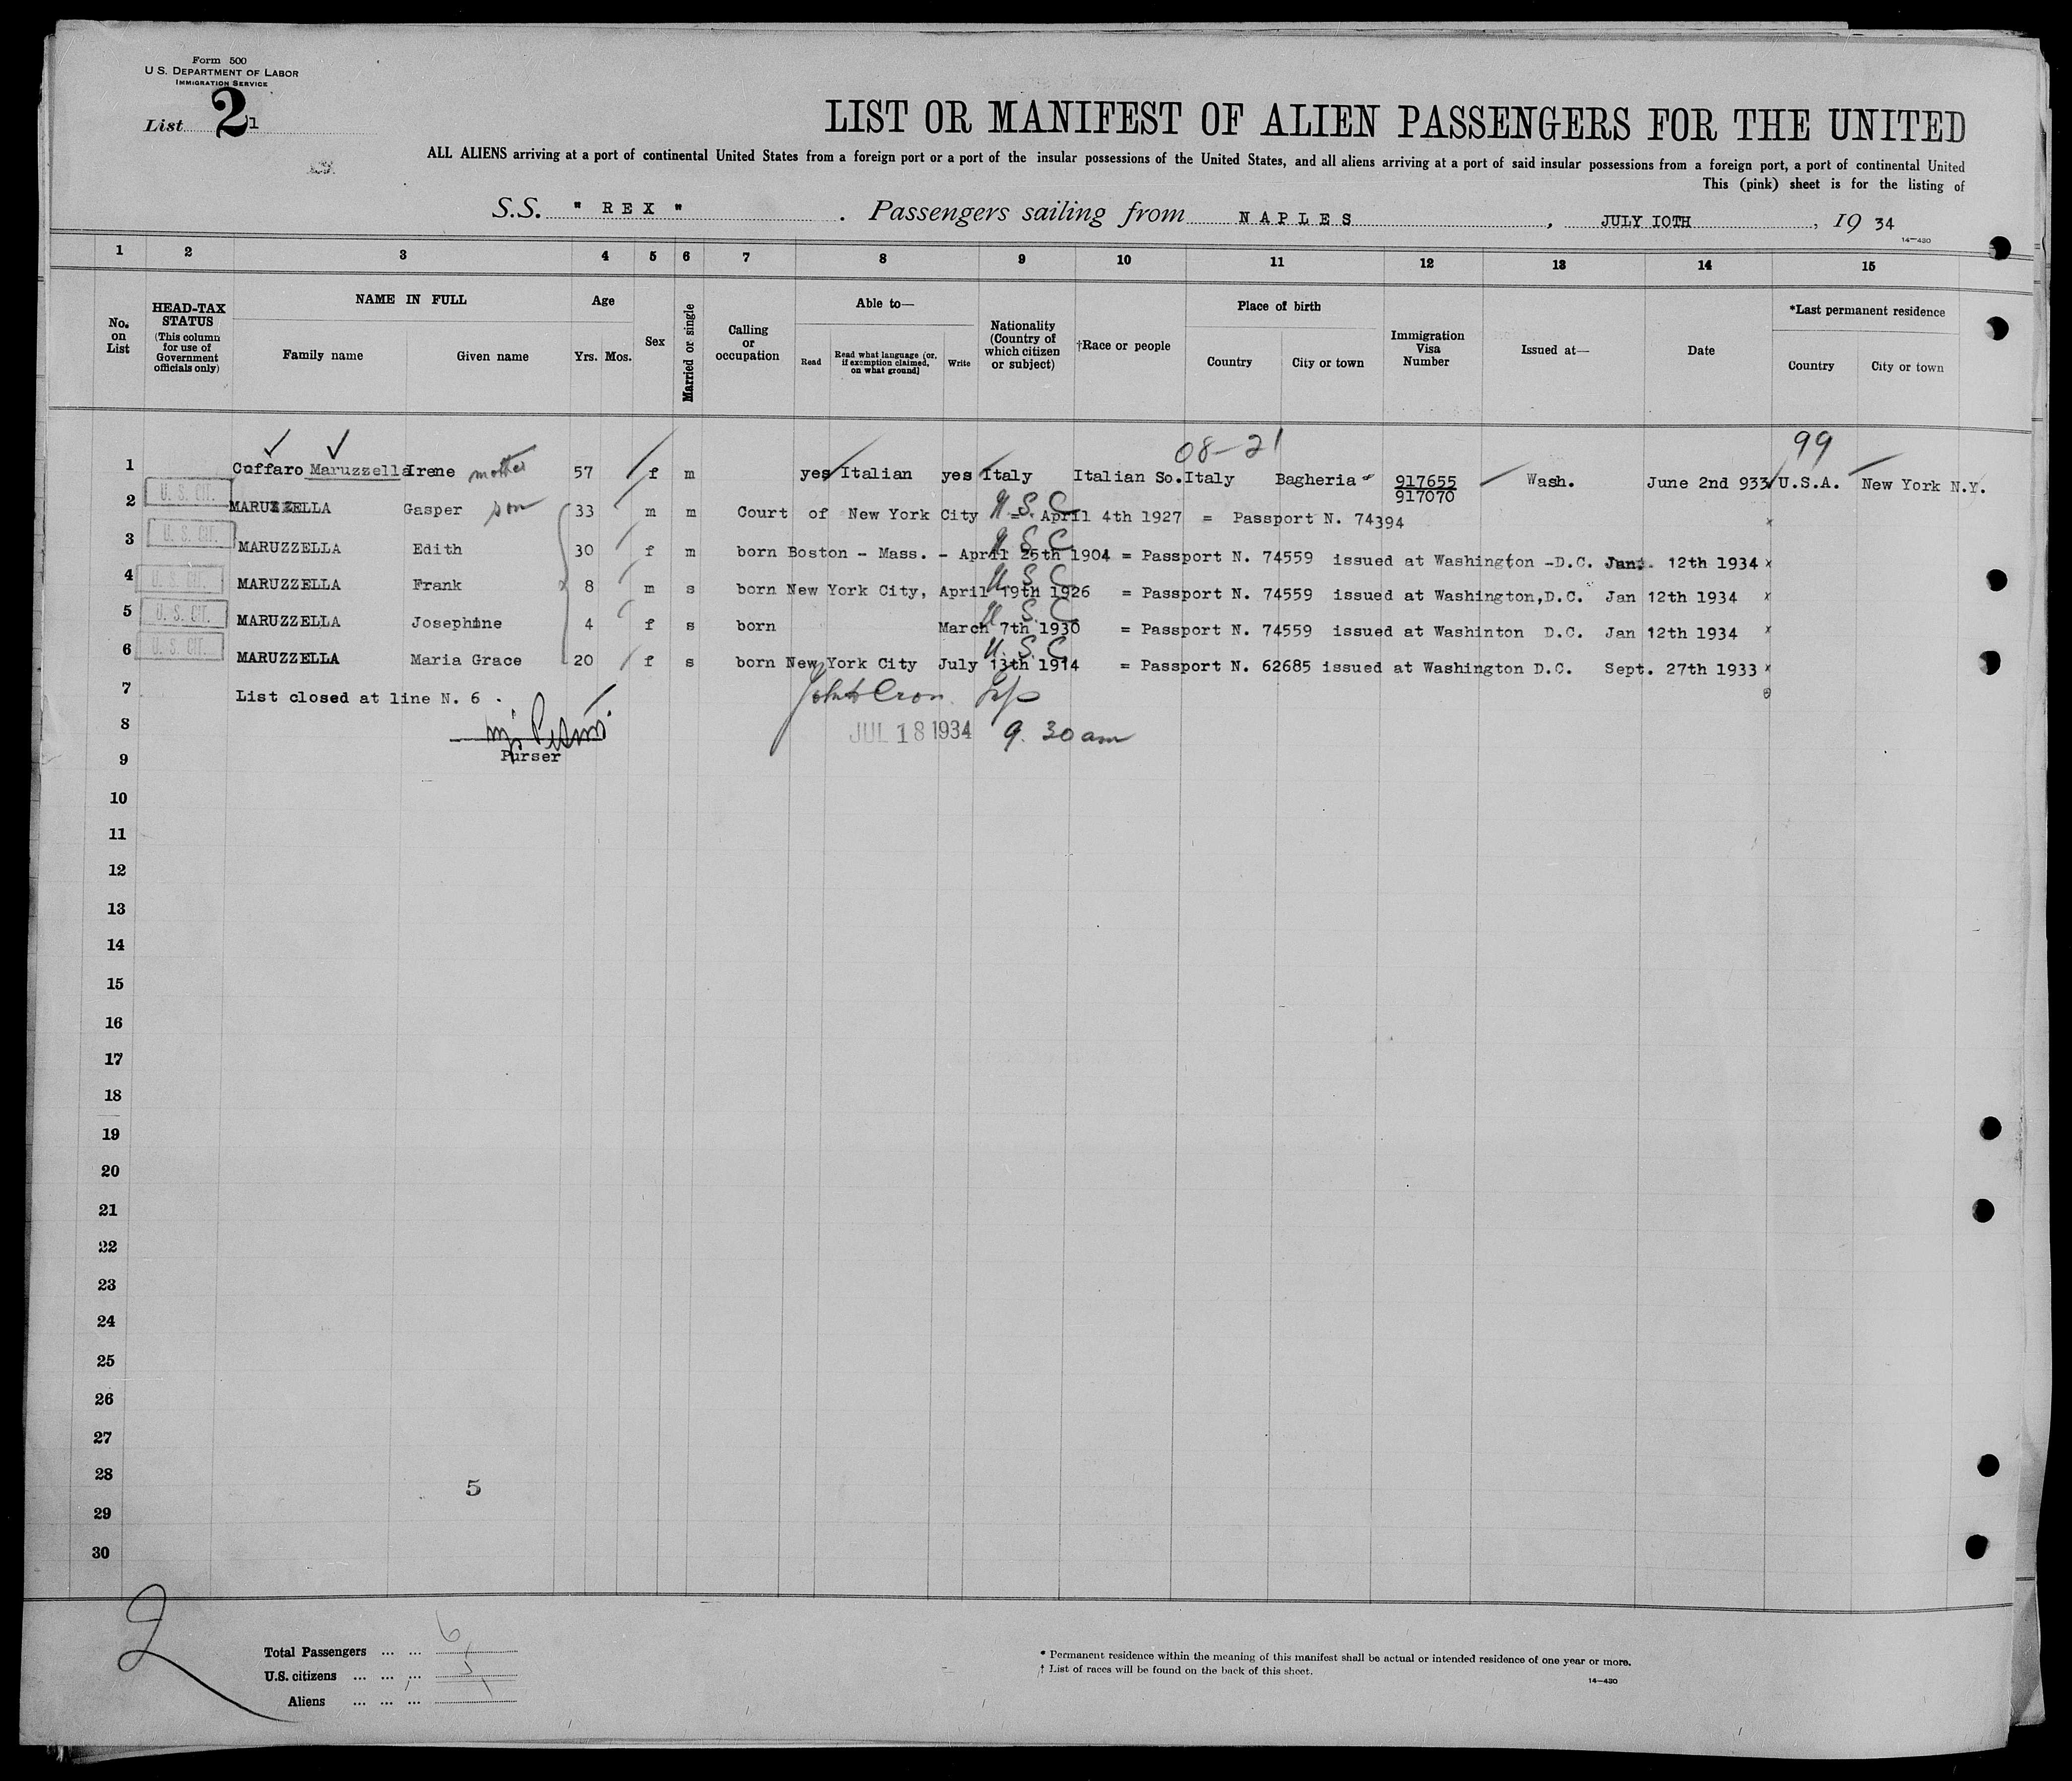 Form 500
U.S. DEPARTMENT OF LABOR
IMMIGRATION SERVICE
List 2 1
LIST OR MANIFEST OF ALIEN PASSENGERS FOR THE UNITED
ALL ALIENS arriving at a port of continental United States from a foreign port or a port of the insular possessions of the United States, and all aliens arriving at a port of said insular possessions from a foreign port, a port of continental United
This (pink) sheet is for the listing of
S.S. " REX " . Passengers sailing from NAPLES , JULY 10TH , 19 34
14—430
1 2 3 4 5 6 7 8 9 10 11 12 13 14 15
No. on List
HEAD-TAX STATUS (This column for use of Government officials only)
NAME IN FULL
Family name Given name
Age
Yrs. Mos.
Sex
Married or single
Calling or occupation
Able to—
Read Read what language (or, if exemption claimed, on what ground) Write
Nationality (Country of which citizen or subject)
†Race or people
Place of birth
Country City or town
Immigration Visa Number
Issued at—
Date
*Last permanent residence
Country City or town
08-21 99
1 Cuffaro Maruzzella Irene mother 57 f m yes Italian yes Italy Italian So. Italy Bagheria 917655 Wash. June 2nd 933 U.S.A. New York N.Y.
917070
2 U. S. CIT. MARUZZELLA Gasper son 33 m m Court of New York City U.S.C = April 4th 1927 = Passport N. 74394 x
3 U. S. CIT. MARUZZELLA Edith 30 f m born Boston - Mass. - April 25th 1904 U.S.C = Passport N. 74559 issued at Washington -D.C. Jan. 12th 1934 x
4 U. S. CIT. MARUZZELLA Frank 8 m s born New York City, April 19th 1926 U.S.C = Passport N. 74559 issued at Washington,D.C. Jan 12th 1934 x
5 U. S. CIT. MARUZZELLA Josephine 4 f s born March 7th 1930 U.S.C = Passport N. 74559 issued at Washinton D.C. Jan 12th 1934 x
6 U. S. CIT. MARUZZELLA Maria Grace 20 f s born New York City July 13th 1914 U.S.C = Passport N. 62685 issued at Washington D.C. Sept. 27th 1933 x
7 List closed at line N. 6 .
8 JUL 18 1934 9.30 am
Purser
9
10
11
12
13
14
15
16
17
18
19
20
21
22
23
24
25
26
27
28 5
29
30
2
Total Passengers ... ... 6
U.S. citizens ... ... ... 5
Aliens ... ... ... 1
* Permanent residence within the meaning of this manifest shall be actual or intended residence of one year or more.
† List of races will be found on the back of this sheet.
14—430